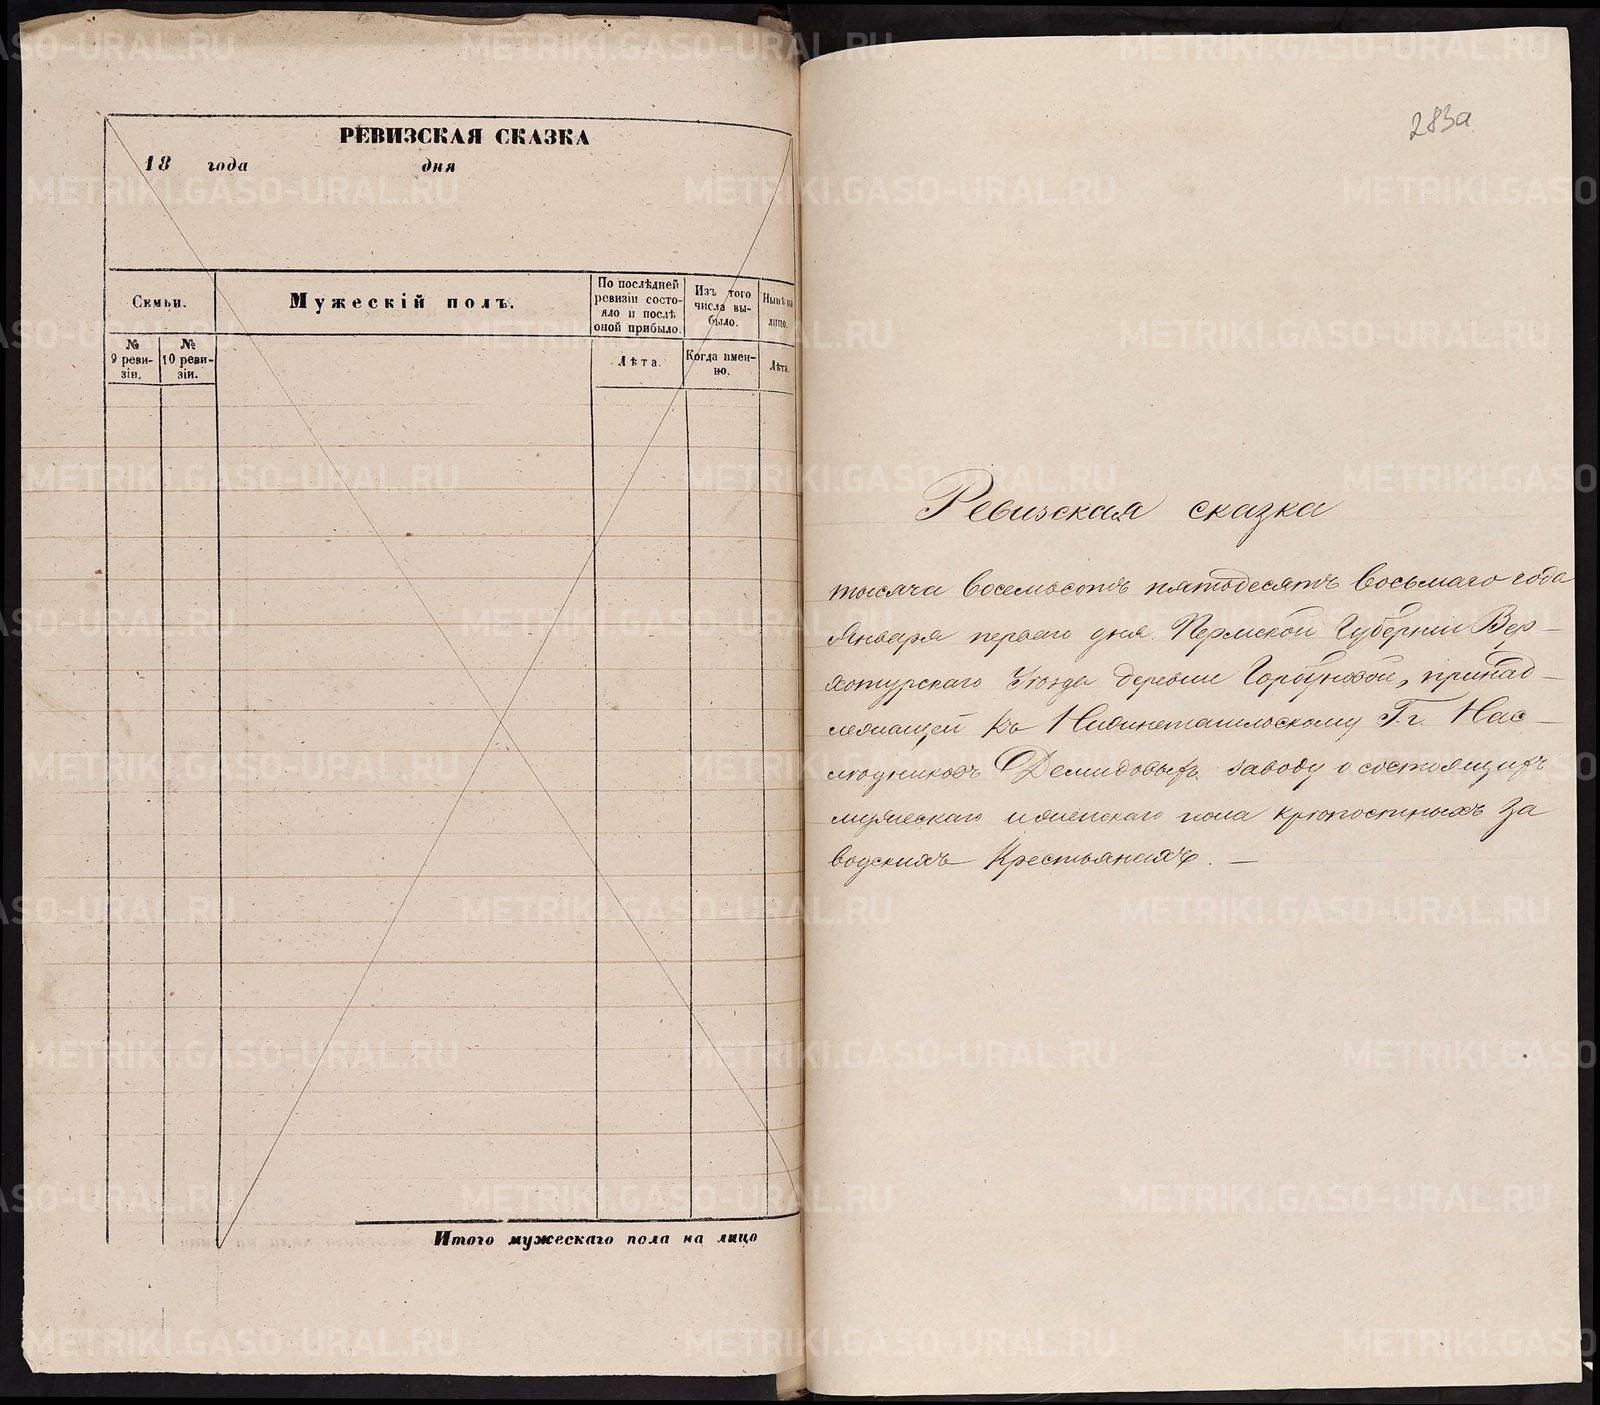 РЕВИЗСКАЯ СКАЗКА
18 года дня
Семьи.
Мужескій полъ.
По послѣдней
ревизіи состо-
яло и послѣ
оной прибыло.
Изъ того
числа вы-
было.
Нынѣ на
лицо.
№
9 реви-
зіи.
№
10 реви-
зіи.
Лѣта.
Когда имен-
но.
Лѣта.
Итого мужескаго пола на лицо
283а
Ревизская сказка
тысяча восемьсотъ пятьдесятъ восьмаго года
Января перваго дня. Пермской Губерніи Вер-
хотурскаго Уѣзда деревни Горбуновой, принад-
лежащей къ Нижнетагильскому Г. г. Нас-
лѣдниковъ Демидовыхъ заводу о состоящихъ
мужескаго и женскаго пола крѣпостныхъ за
водскихъ Крестьянахъ. —
METRIKI.GASO-URAL.RU